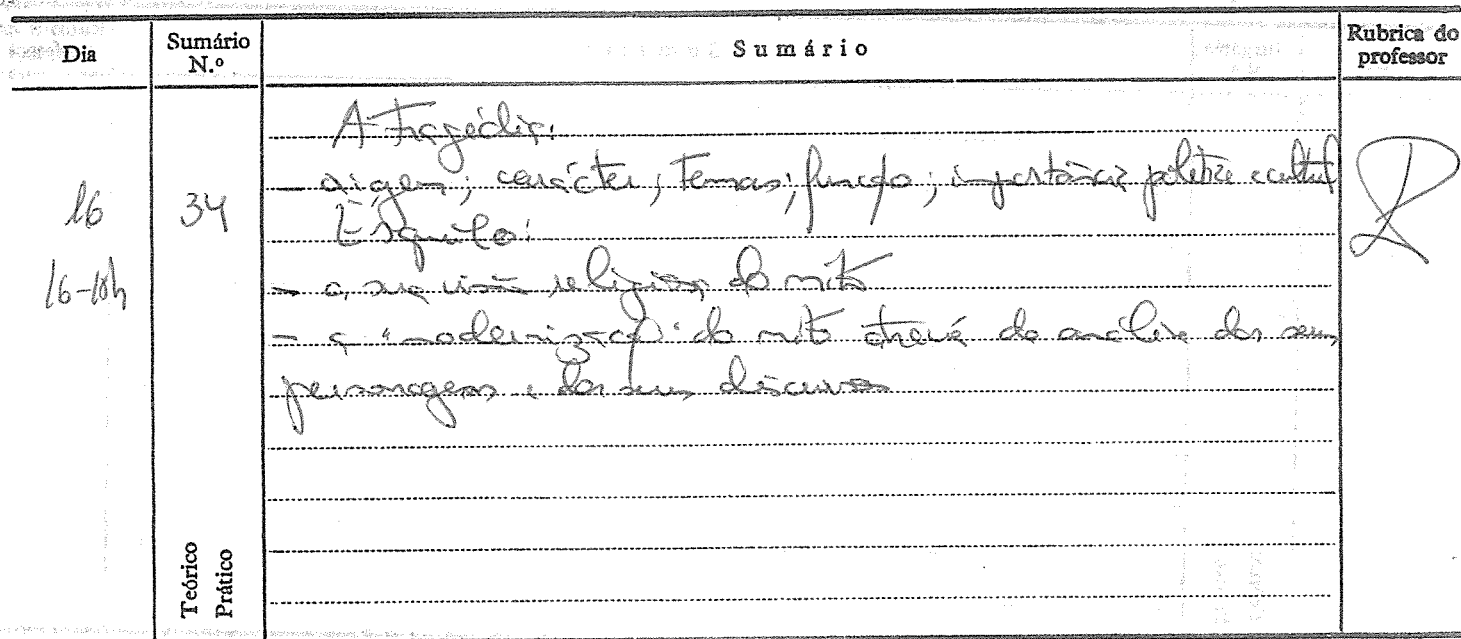 Dia
Sumário N.º
Sumário
Rubrica do professor
16
16-18h
34
A tragédia:
- origem; carácter; temas; função; importância política e cultural
Ésquilo:
- a sua visão religiosa do mito
- a "modernização" do mito através da análise das suas
personagens e dos seus discursos
Teórico
Prático